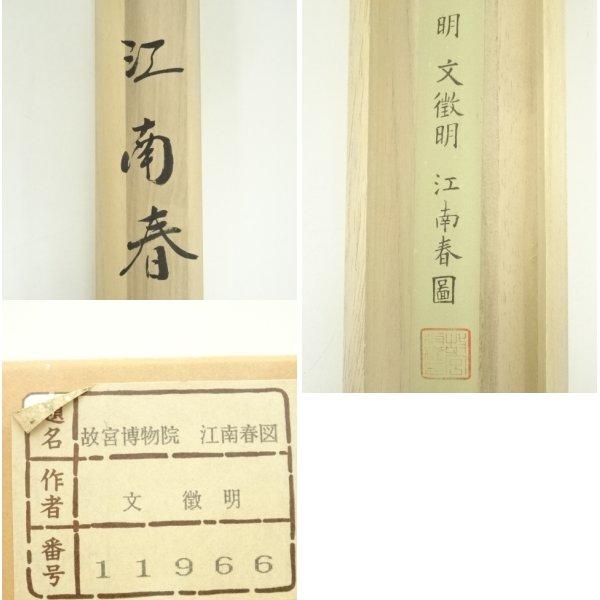 江南春
明 文徵明 江南春圖
題名 故宮博物院 江南春図
作者 文徵明
番号 11966